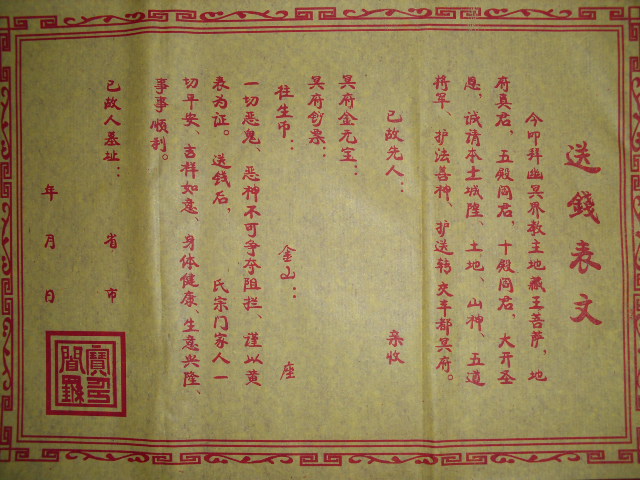 送錢表文
今叩拜幽冥界教主地藏王菩萨,地
府真君,五殿阎君,十殿阎君,大开圣
恩,诚请本土城隍、土地、山神、五道
将军、护法善神、护送转交丰都冥府。
已故先人: 亲收
冥府金元宝:
冥府钞票:
往生币: 金山: 座
一切恶鬼、恶神不可争夺阻拦、谨以黄
表为证。送钱后, 氏宗门家人一
切平安、吉祥如意、身体健康、生意兴隆、
事事顺利。
已故人墓址: 省 市
年 月 日